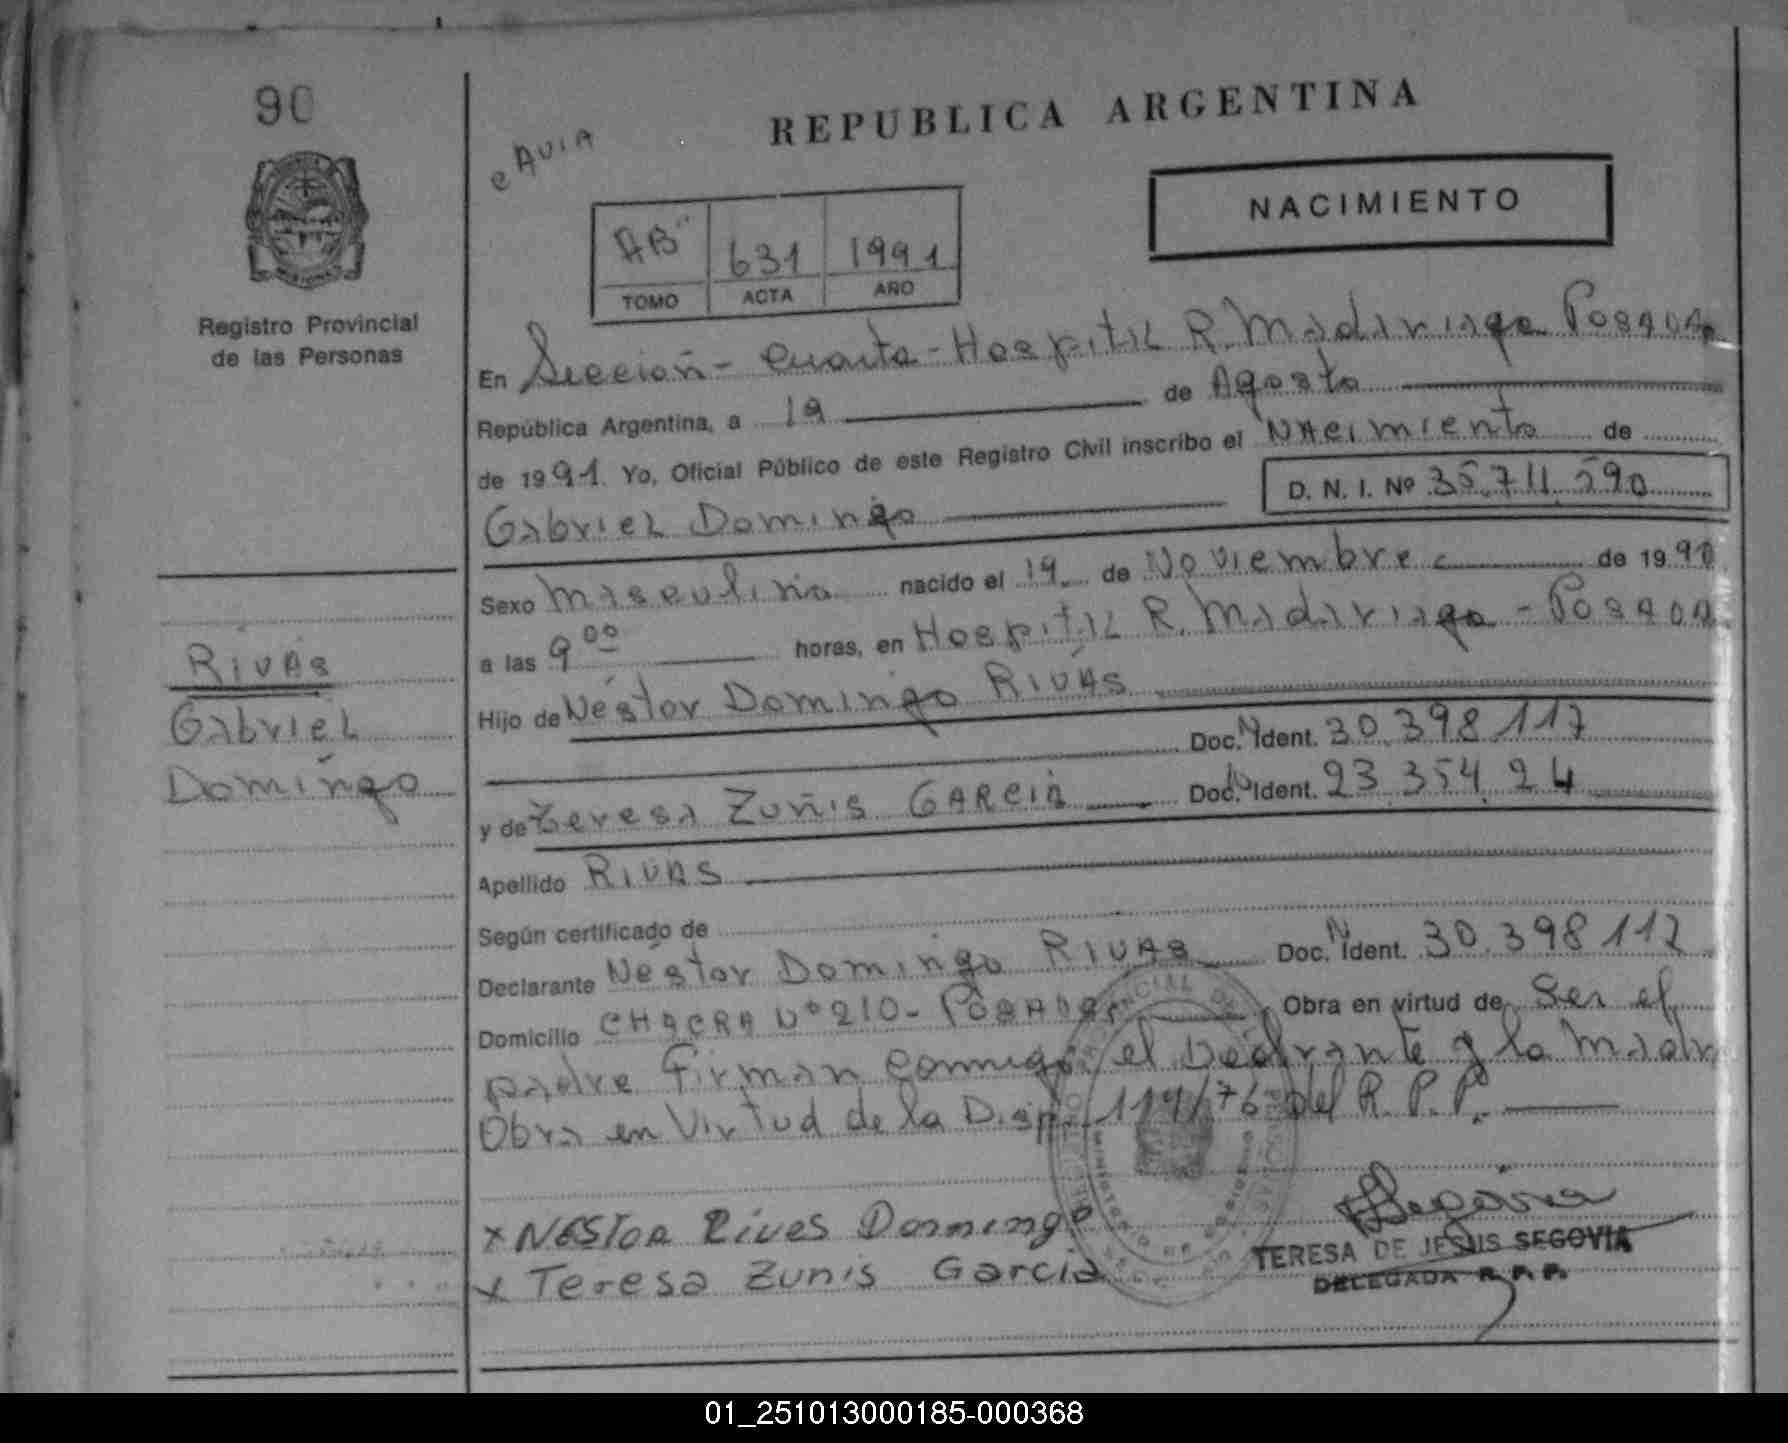 90
REPUBLICA ARGENTINA
NACIMIENTO
AB 631 1991
TOMO ACTA AÑO
Registro Provincial
de las Personas
En Sección - Cuarta - Hospital R. Madariaga Posadas
República Argentina, a 19 de Agosto
de 1991. Yo, Oficial Público de este Registro Civil inscribo el Nacimiento de
D. N. I. Nº 35.711.590
Gabriel Domingo
Sexo Masculino nacido el 19 de Noviembre de 1990
a las 9 00 horas, en Hospital R. Madariaga - Posadas
Hijo de Néstor Domingo RIVAS
Doc. N Ident. 30.398.117
y de Teresa Zunis GARCIA Doc. N Ident. 23.354.24
Apellido RIVAS
Según certificado de
Declarante Néstor Domingo RIVAS Doc. N Ident. 30.398.117
Domicilio CHACRA Nº 210 - Posadas Obra en virtud de Ser el
padre Firman conmigo el Declarante y la Madre
Obra en Virtud de la Disp. 119/76 del R. P. P.
x NESTOR Rives Domingo
x Teresa Zunis Garcia
TERESA DE JESUS SEGOVIA
DELEGADA R. P. P.
RIVAS
Gabriel
Domingo
01_251013000185-000368